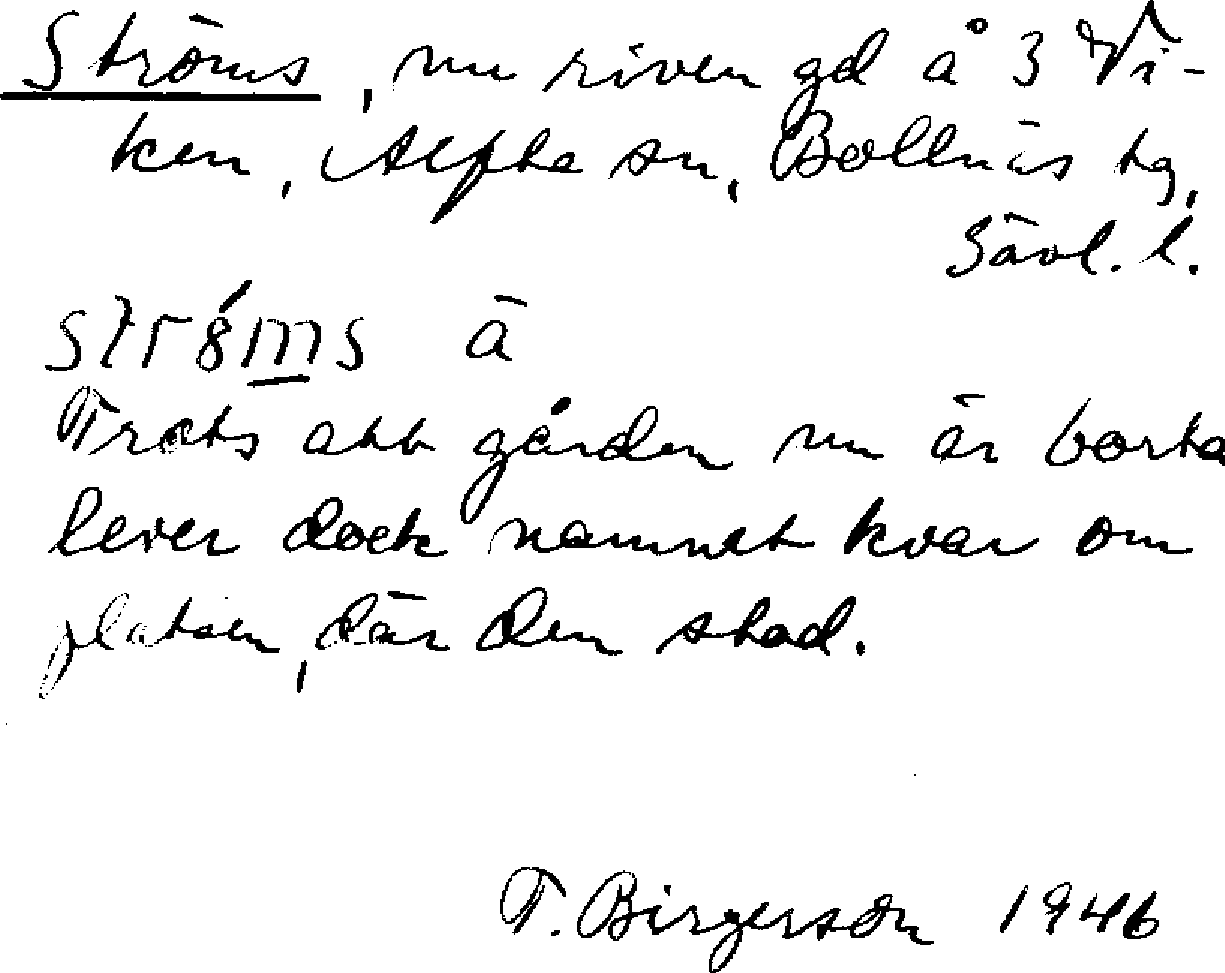 Ströms, nu riven gd å 3 Vi-
ken, Alfta sn, Bollnäs tg,
Gävl. l.
ā
Trots att gården nu är borta
lever dock namnet kvar om
platsen, där den stod.
T. Birgerson 1946